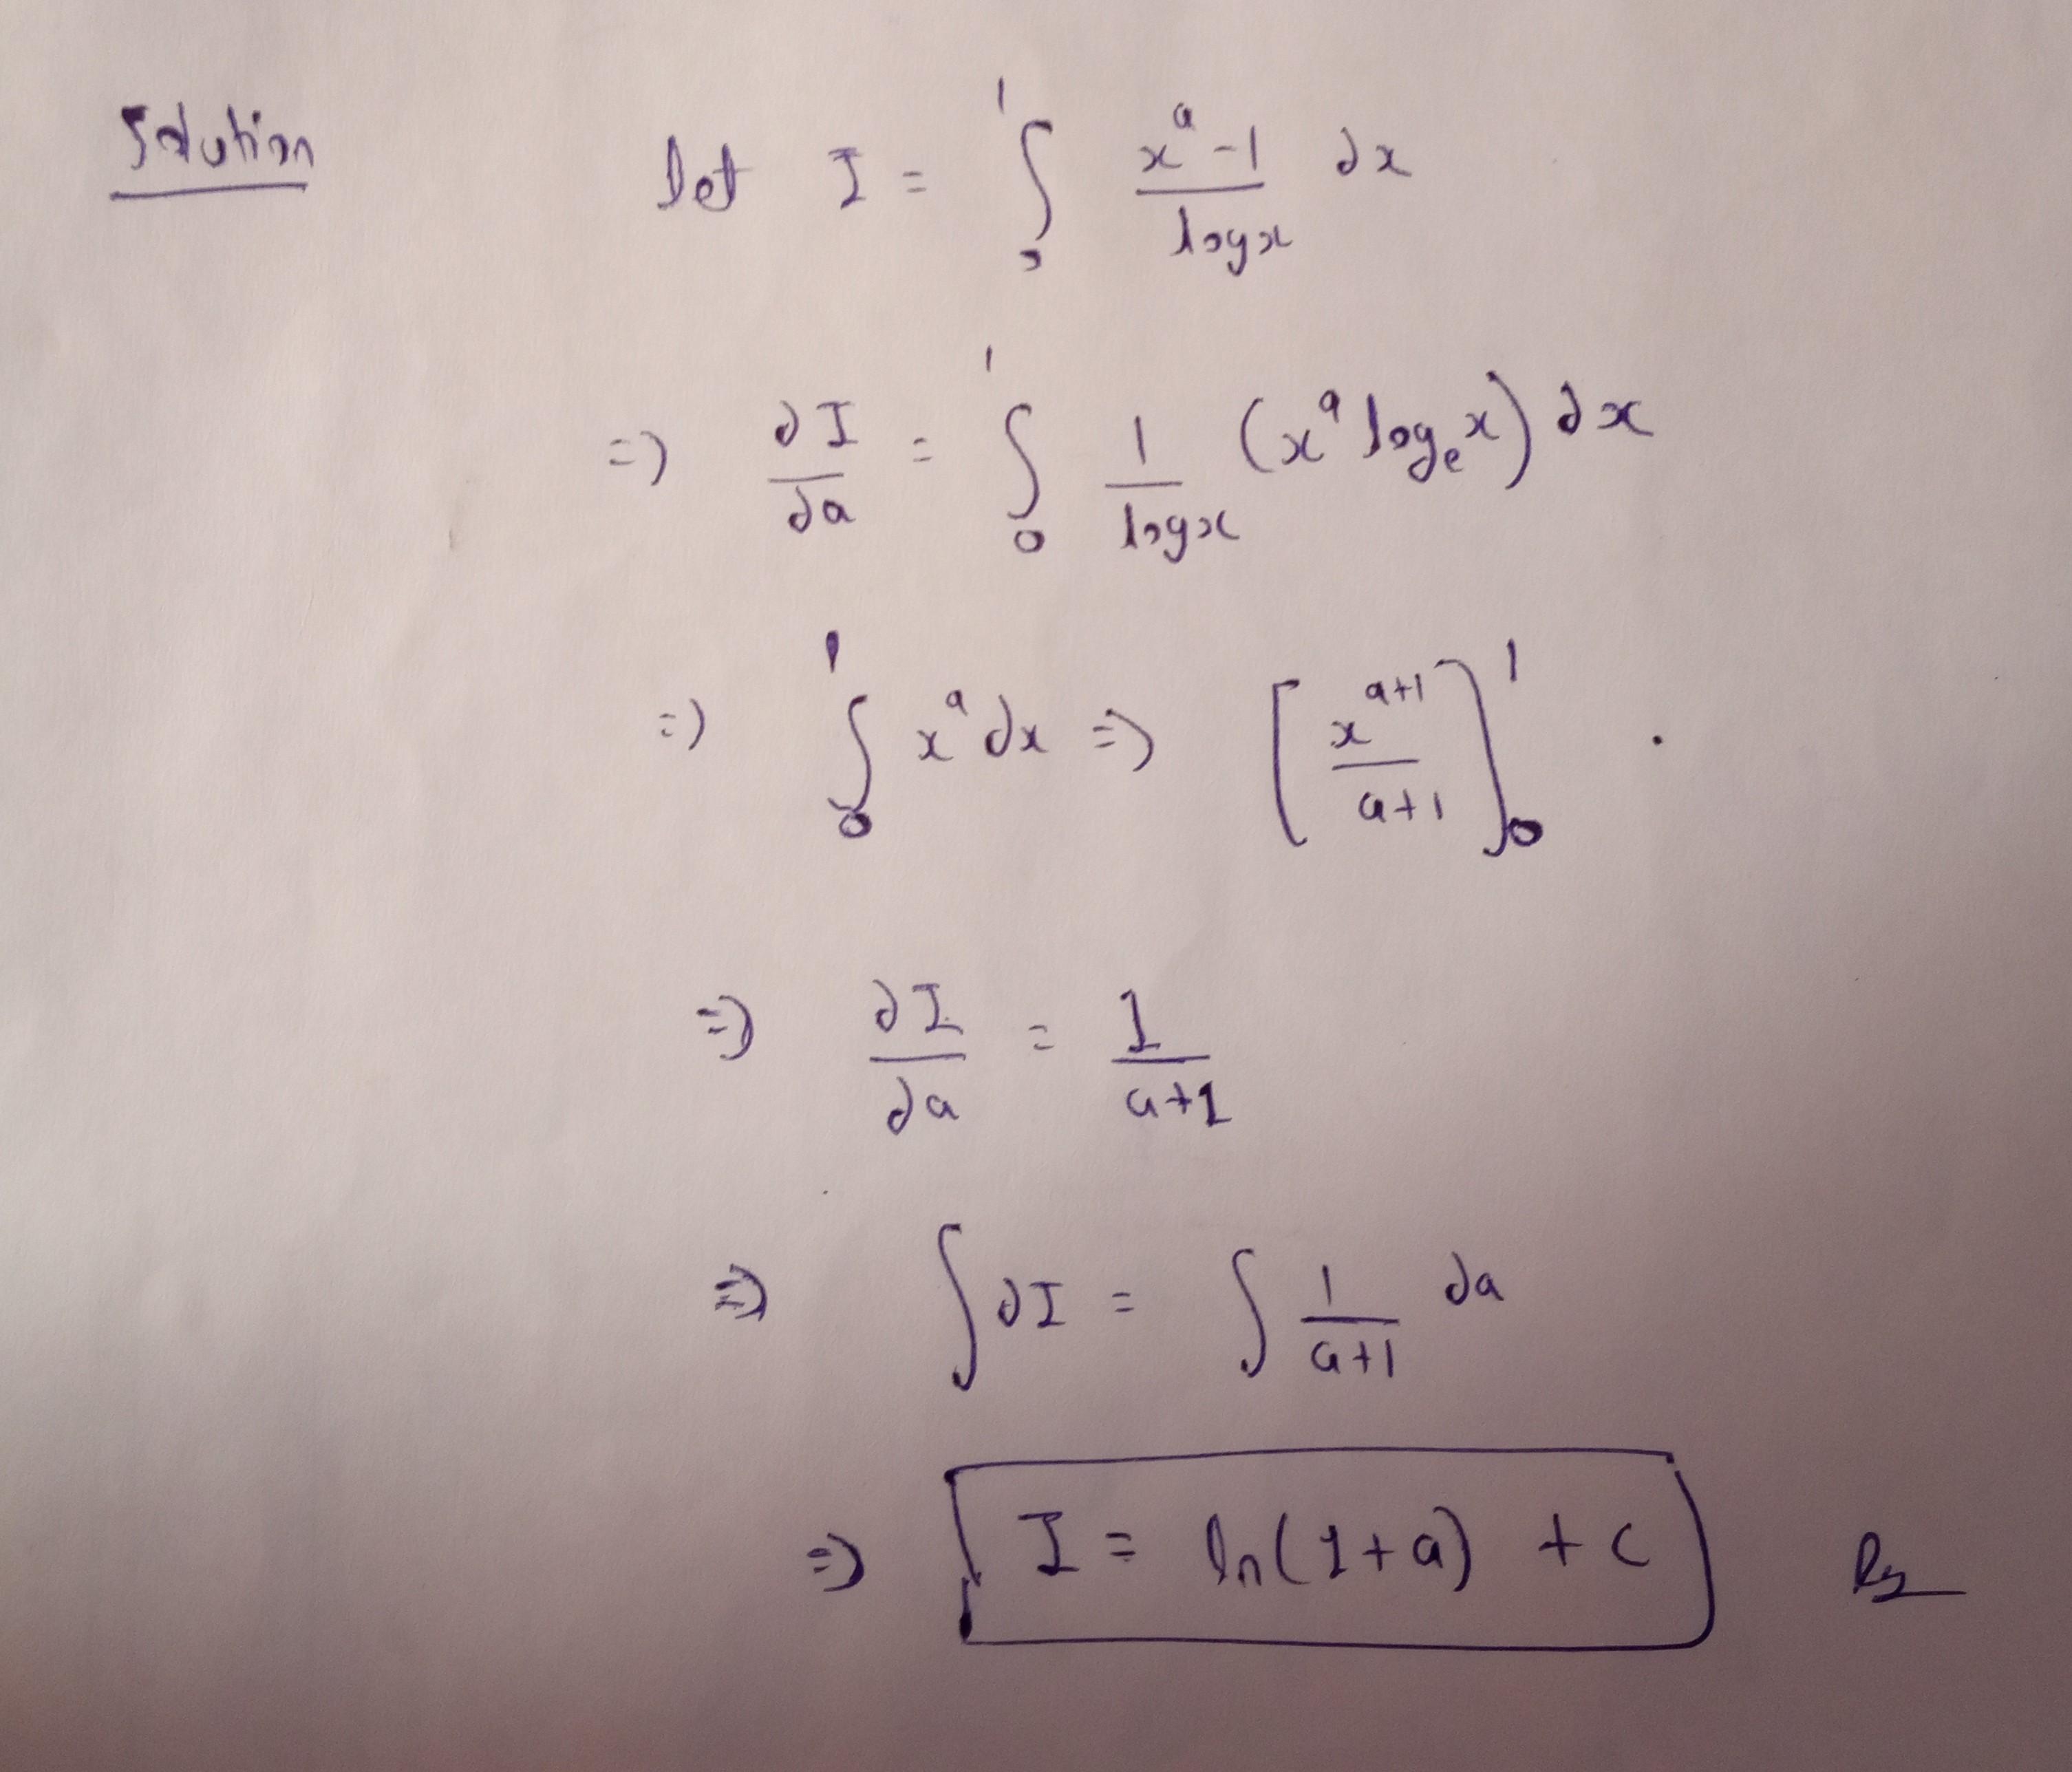 Solution let I = ∫₀¹ (x^a - 1)/(log x) ∂x
=) ∂I/∂a = ∫₀¹ 1/(log x) (x^a logₑx) ∂x
=) ∫₀¹ x^a ∂x => [x^(a+1)/(a+1)]₀¹ .
=) ∂I/∂a = 1/(a+1)
=) ∫∂I = ∫ 1/(a+1) ∂a
=) I = ln(1+a) + c